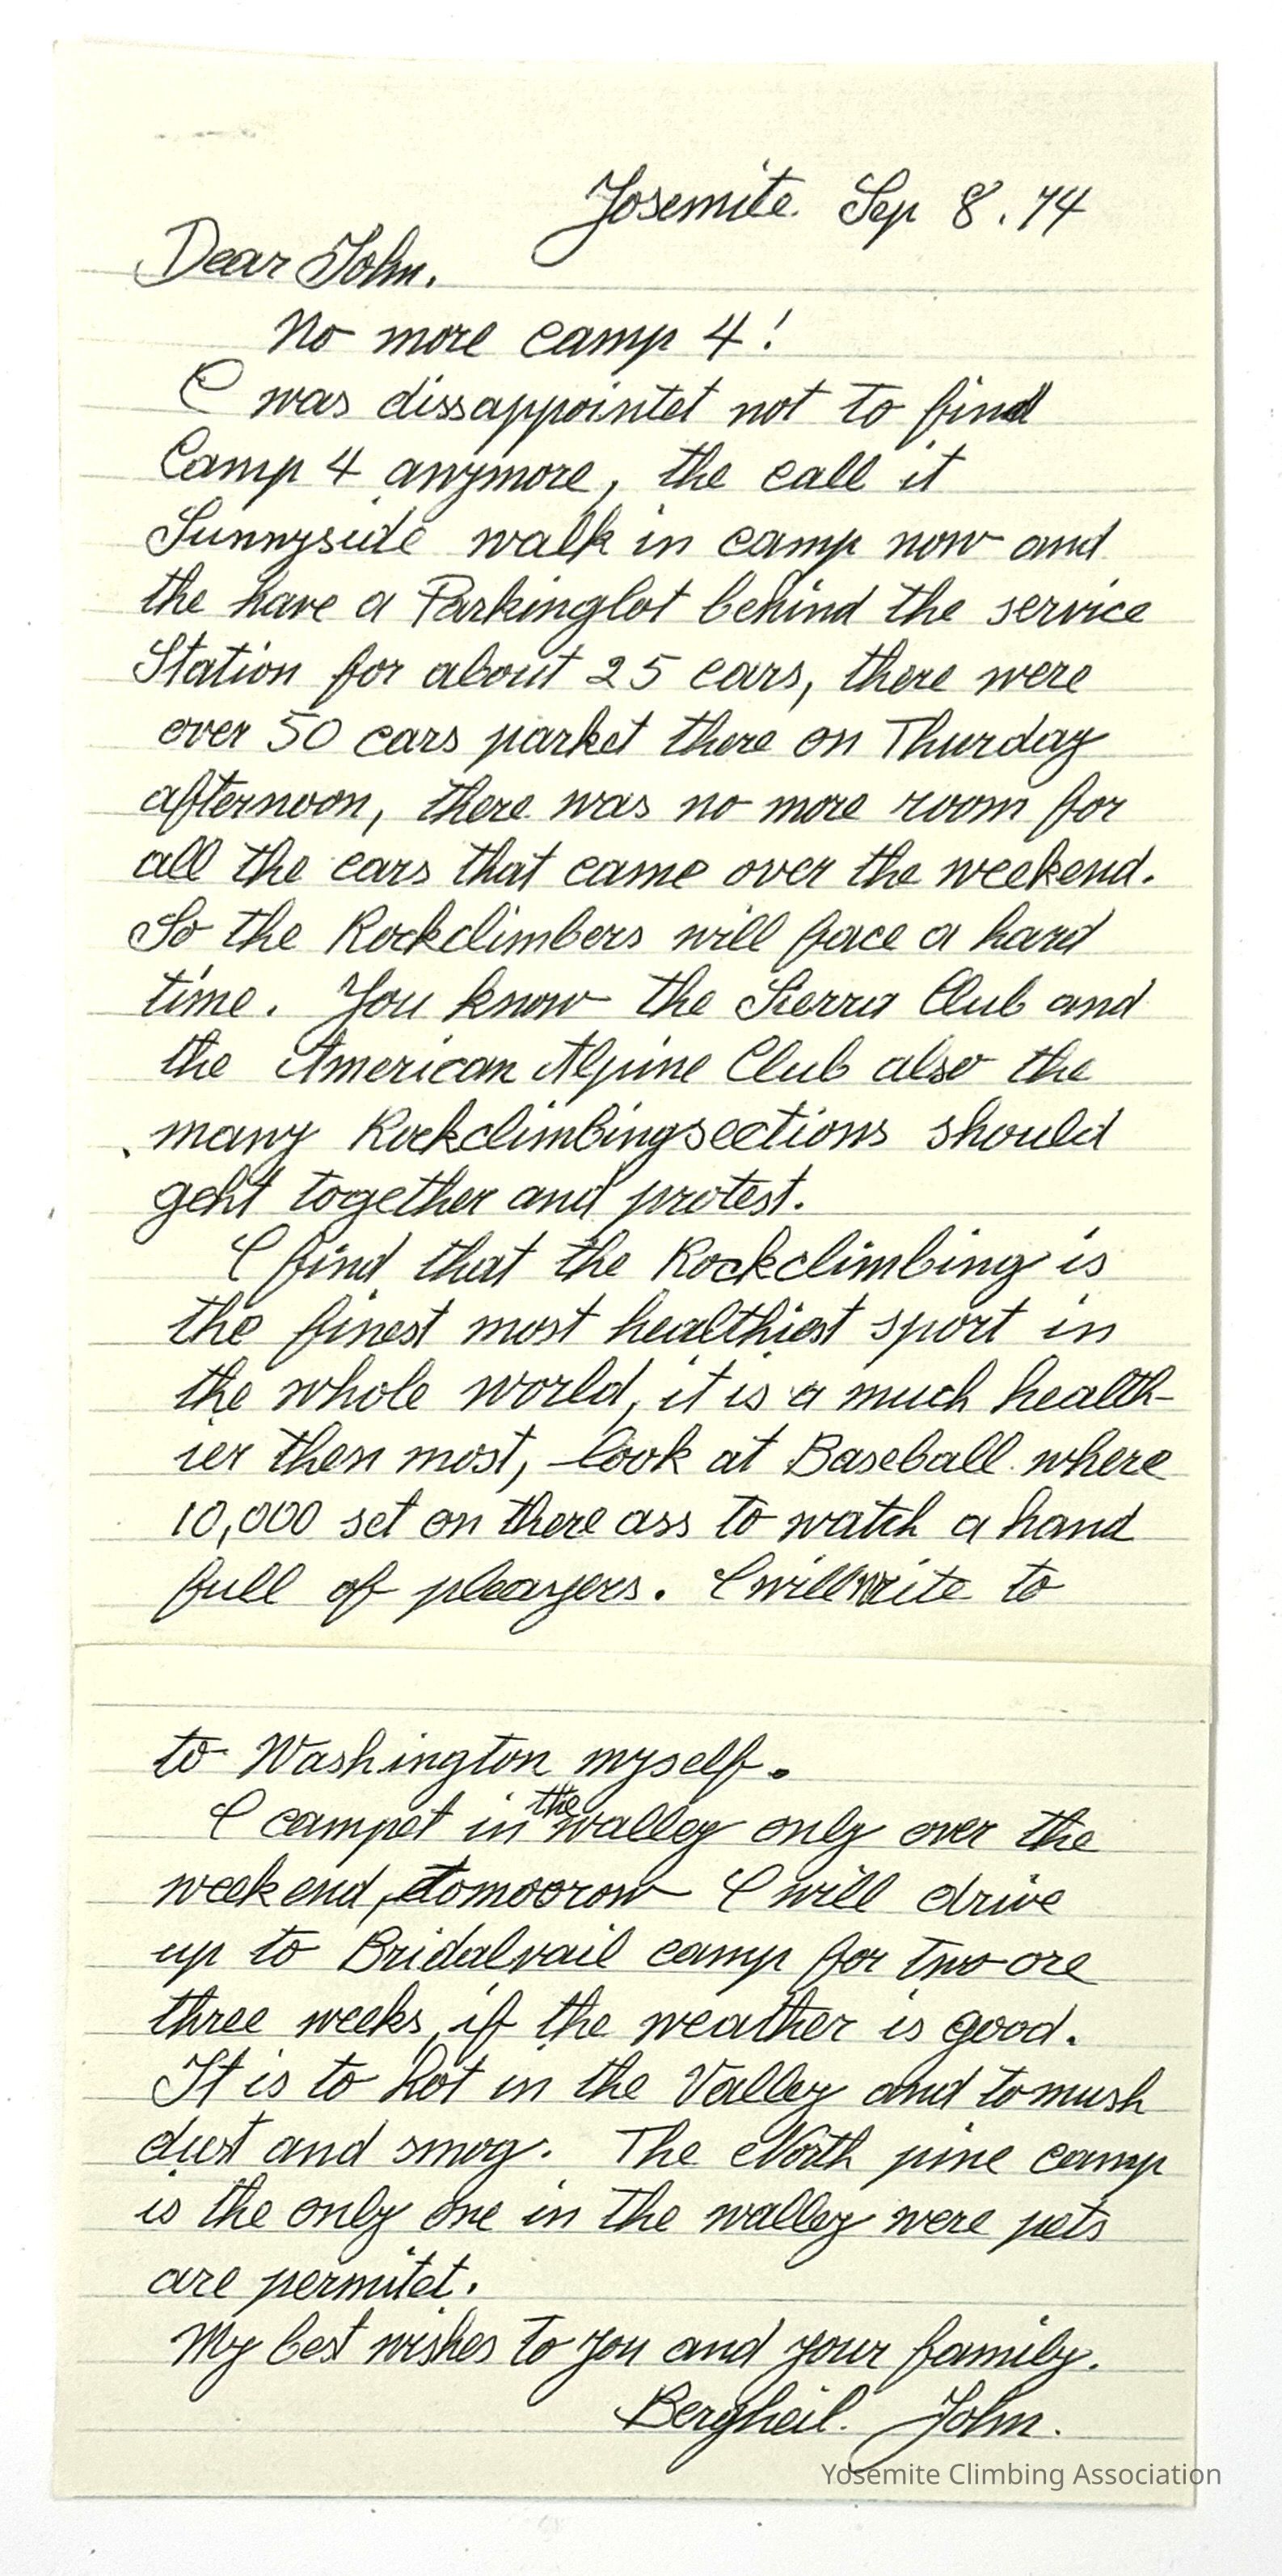 Yosemite. Sep 8. 74
Dear John.
No more camp 4!
I was dissappointet not to find
Camp 4 anymore, the call it
Sunnyside walk in camp now and
the have a Parkinglot behind the service
Station for about 25 cars, there were
over 50 cars parket there on Thurday
afternoon, there was no more room for
all the cars that came over the weekend.
So the Rockclimbers will face a hard
time. You know the Sierra Club and
the American Alpine Club also the
many Rockclimbingsections should
geht together and protest.
I find that the Rockclimbing is
the finest most healthiest sport in
the whole world, it is a much health-
ier then most, look at Baseball where
10,000 set on there ass to watch a hand
full of pleayers. I will write to
to Washington myself.
I campet in the walley only over the
weekend, tomoorow I will drive
up to Bridalvail camp for two ore
three weeks, if the weather is good.
It is to hot in the Valley and to mush
dust and smog. The North pine camp
is the only one in the walley were pets
are permitet.
My best wishes to you and your family.
Bergheil. John.
Yosemite Climbing Association